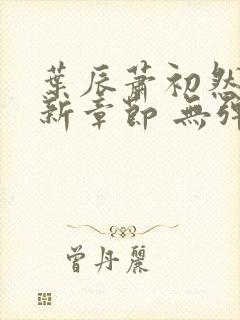 葉辰蕭初然
新章節 無彈
曾丹麗